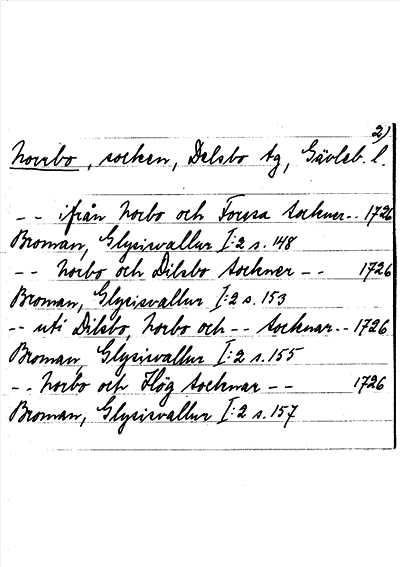 2)
Norrbo, socken, Delsbo tg, Gävleb. l.
-- ifrån Norbo och Forssa Sockner-- 1726
Broman, Glysisvallur I:2 s. 148
-- Norbo och Dilsbo Sockner -- 1726
Broman, Glysisvallur I:2 s. 153
-- uti Dilsbo, Norbo och -- Socknar-- 1726
Broman, Glysisvallur I:2 s. 155
-- Norbo och Hög Socknar -- 1726
Broman, Glysisvallur I:2 s. 157